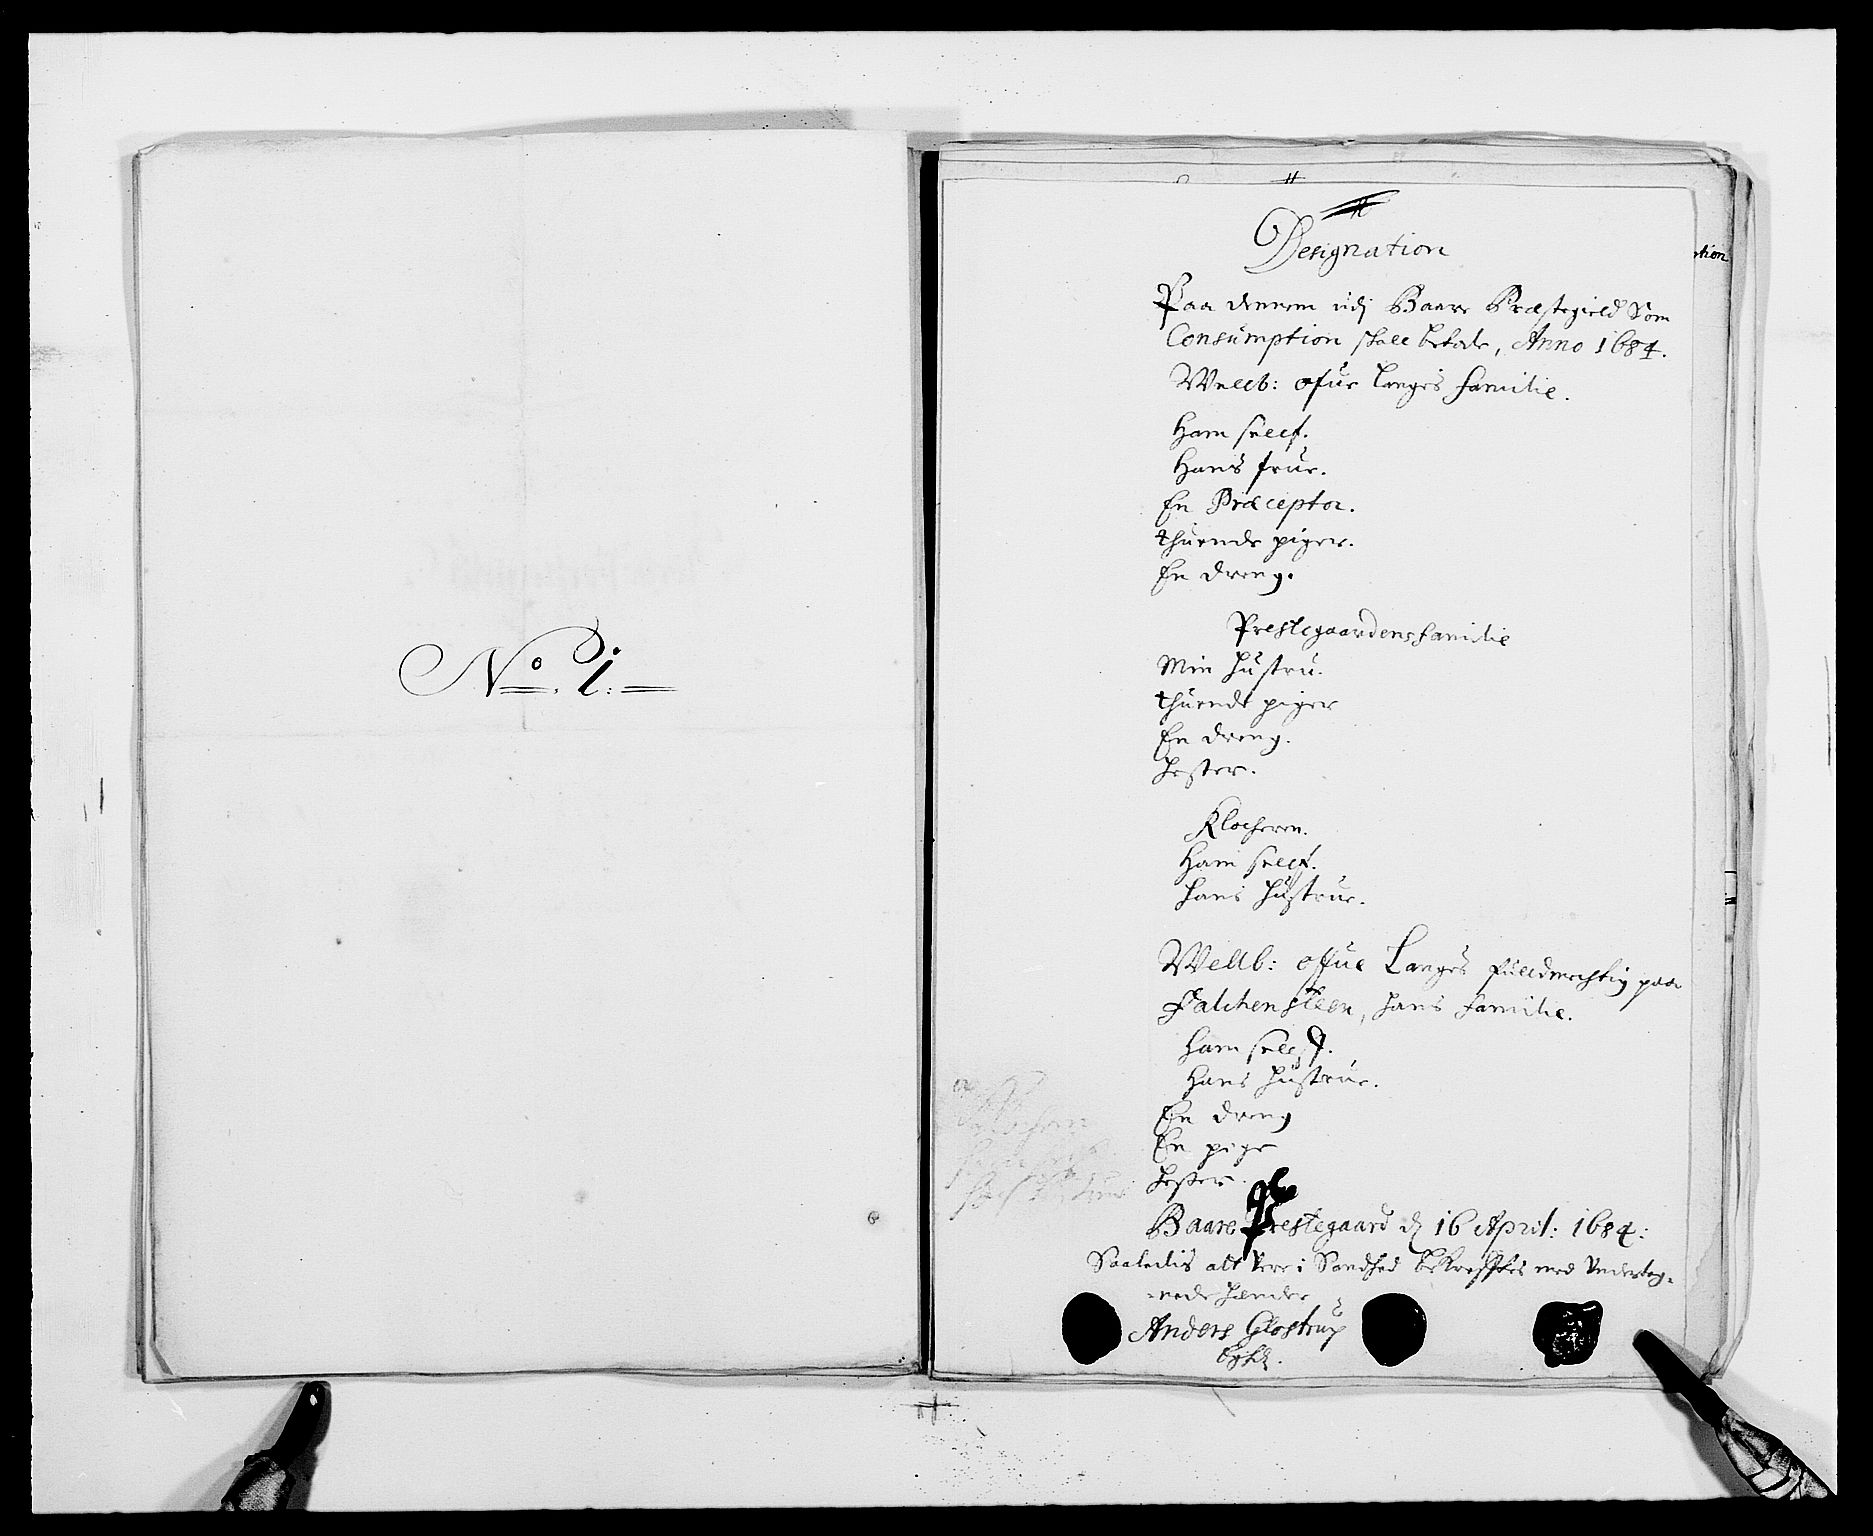 No. 1.
Designation
Paa dennem udj Baare Præstegield Som
Consumption skall betale, Anno 1684.
Wellb: Ofue Langes familie.
Ham sellf.
Hans frue.
En Præceptor.
thuende piger.
En dreng.
Prestegaardens familie
Min hustru.
thuende piger
En dreng.
Hester.
Klocheren.
Ham sellf.
Hans hustrue.
Wellb: Offue Langes fulldmechtig paa
Falchensteen, hans familie.
Ham sellf.
Hans hustrue.
En dreng
En pige
Hester.
Baare Prestegaard d. 16 April: 1684:
Saaledis alt Vere i Sandhed bekreffter med Underteg-
-nede hænder
Anders Glostrup
tion